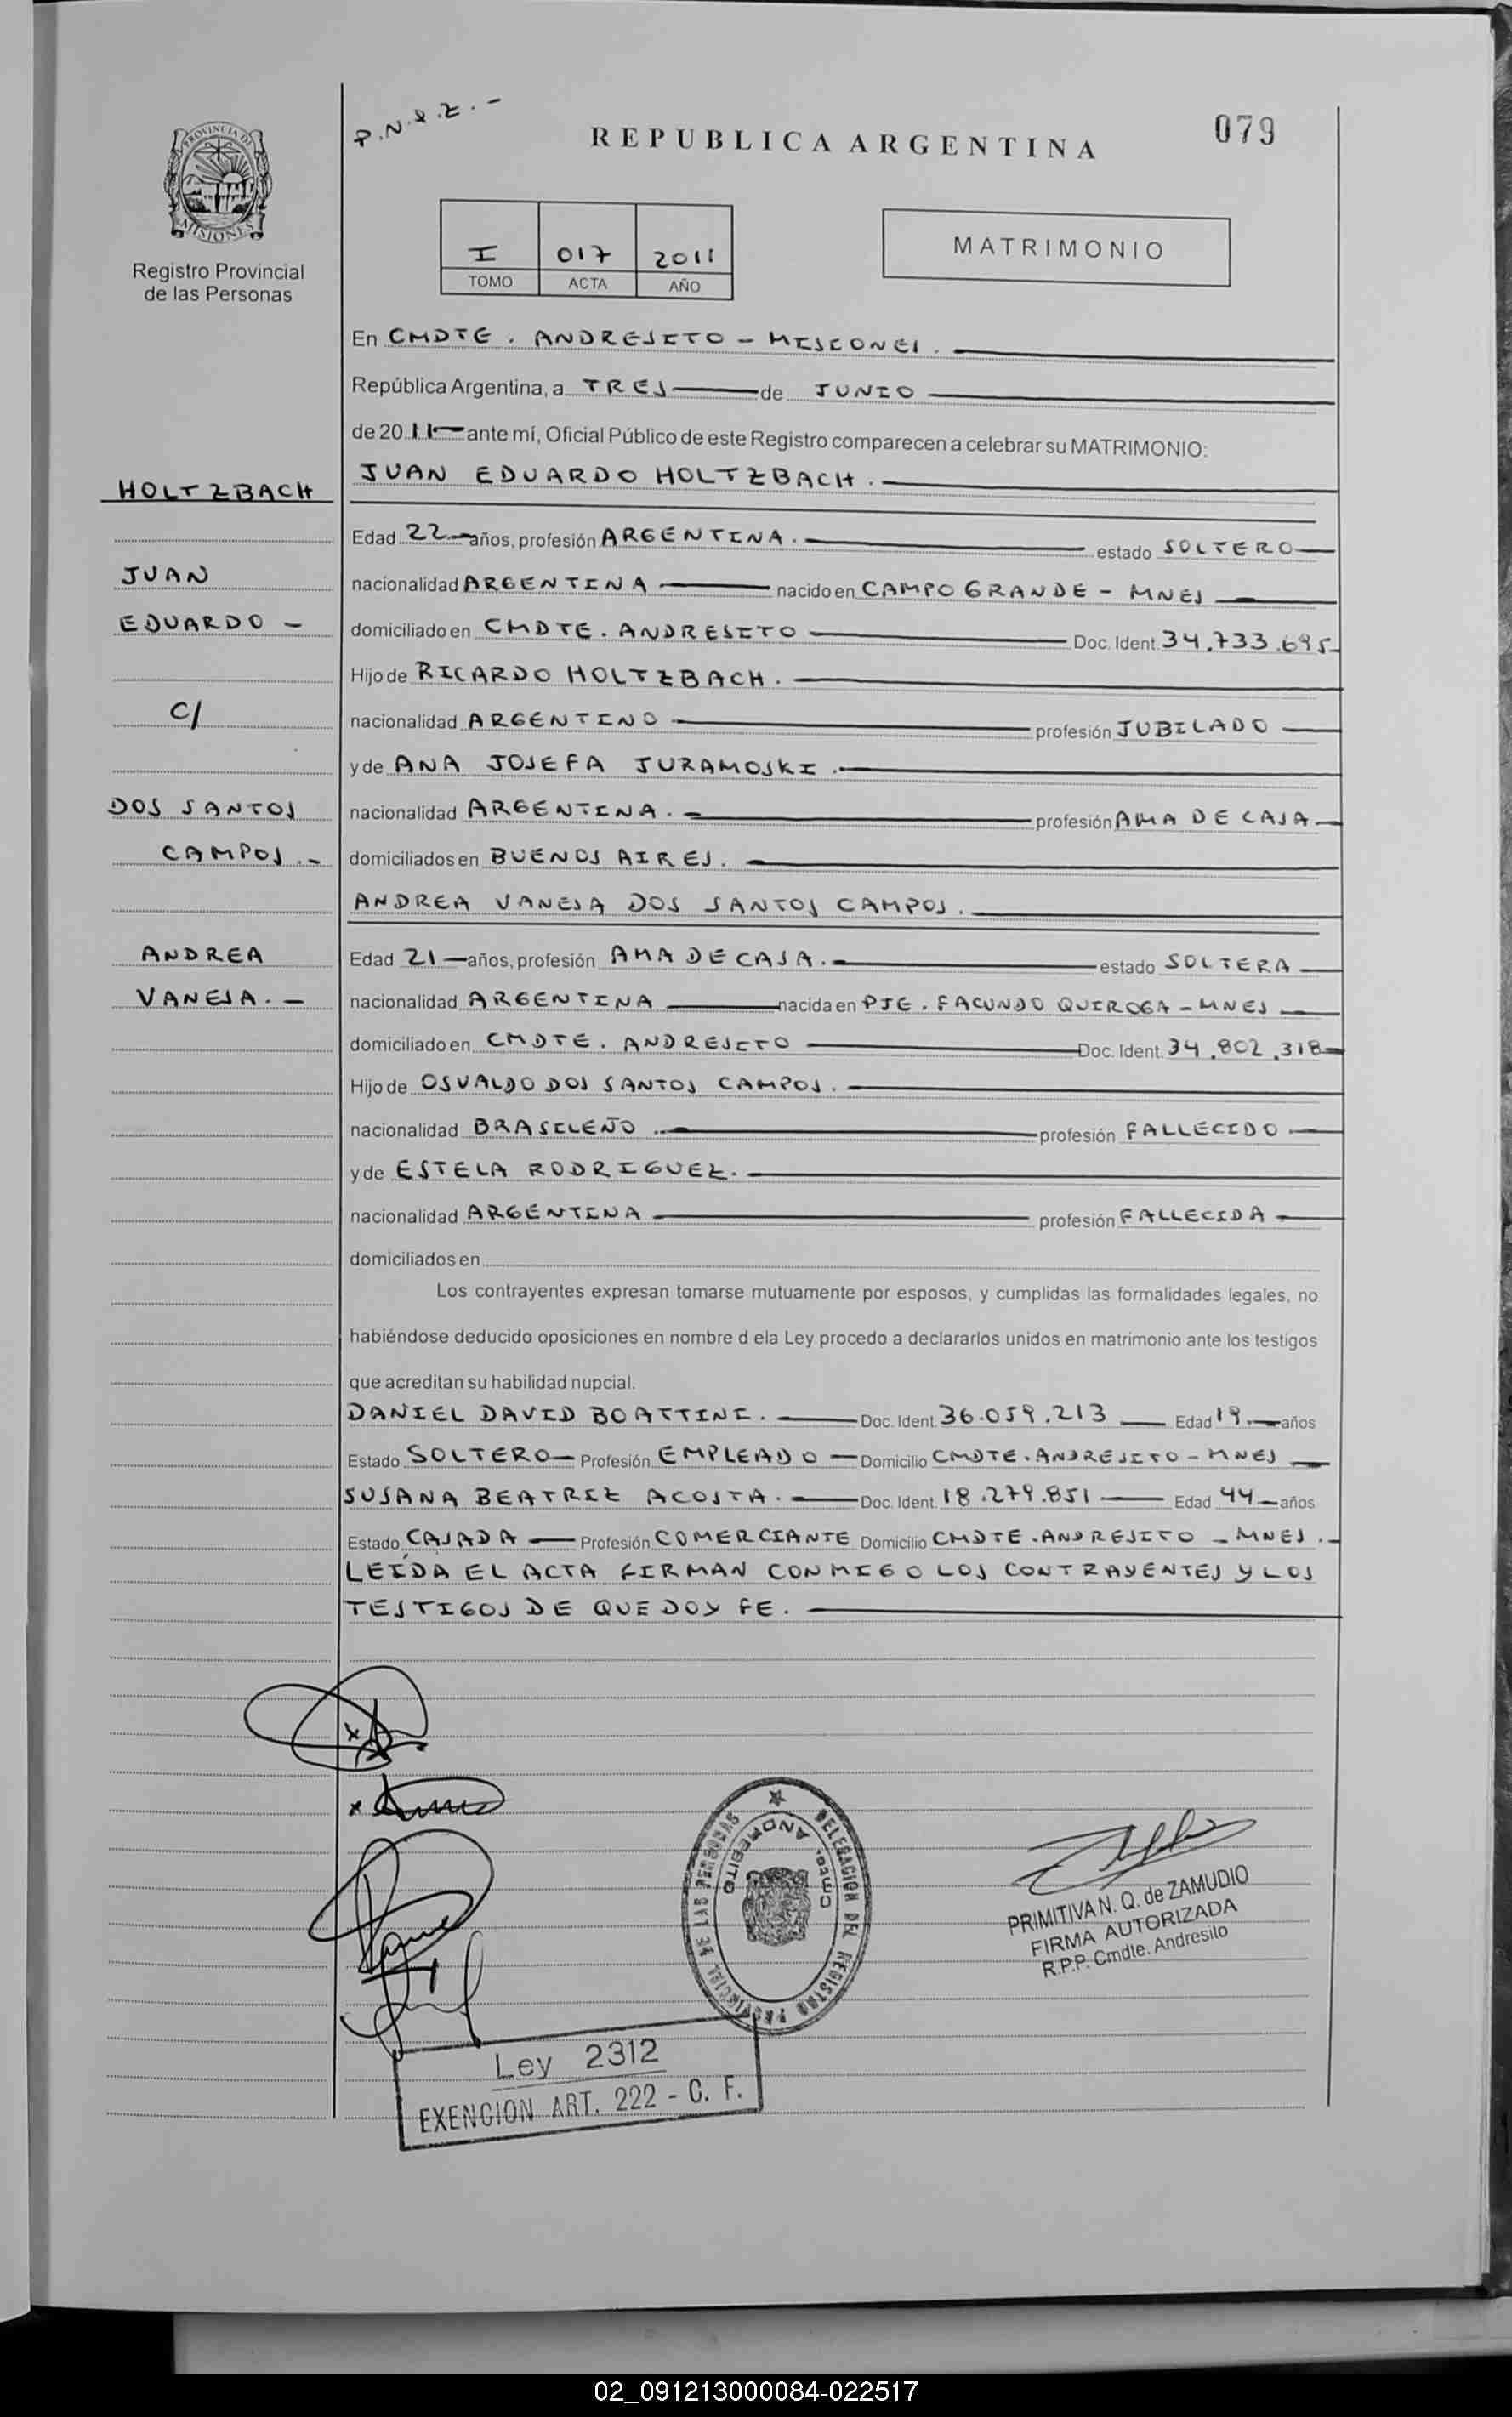 P.N.Q.Z.-
REPUBLICA ARGENTINA
079
PROVINCIA DE
MISIONES
Registro Provincial
de las Personas
I 017 2011
TOMO ACTA AÑO
MATRIMONIO
En CMDTE. ANDRESITO - MISIONES.
República Argentina, a TRES de JUNIO
de 2011 ante mí, Oficial Público de este Registro comparecen a celebrar su MATRIMONIO:
HOLTZBACH
JUAN EDUARDO HOLTZBACH.
Edad 22 años, profesión ARGENTINA. estado SOLTERO
JUAN
nacionalidad ARGENTINA nacido en CAMPO GRANDE - MNES
EDUARDO -
domiciliado en CMDTE. ANDRESITO Doc. Ident. 34.733.695
Hijo de RICARDO HOLTZBACH.
C/
nacionalidad ARGENTINO profesión JUBILADO
y de ANA JOSEFA JURAMOSKI.
DOS SANTOS
nacionalidad ARGENTINA. profesión AMA DE CASA
CAMPOS.-
domiciliados en BUENOS AIRES.
ANDREA VANESA DOS SANTOS CAMPOS.
ANDREA
Edad 21 años, profesión AMA DE CASA. estado SOLTERA
VANESA.-
nacionalidad ARGENTINA nacida en PJE. FACUNDO QUIROGA - MNES
domiciliado en CMDTE. ANDRESITO Doc. Ident. 34.802.318
Hijo de OSVALDO DOS SANTOS CAMPOS.
nacionalidad BRASILEÑO profesión FALLECIDO
y de ESTELA RODRIGUEZ.
nacionalidad ARGENTINA profesión FALLECIDA
domiciliados en
Los contrayentes expresan tomarse mutuamente por esposos, y cumplidas las formalidades legales, no
habiéndose deducido oposiciones en nombre d ela Ley procedo a declararlos unidos en matrimonio ante los testigos
que acreditan su habilidad nupcial.
DANIEL DAVID BOATTINI. Doc. Ident. 36.059.213 Edad 19 años
Estado SOLTERO Profesión EMPLEADO Domicilio CMDTE. ANDRESITO - MNES
SUSANA BEATRIZ ACOSTA. Doc. Ident. 18.279.851 Edad 44 años
Estado CASADA Profesión COMERCIANTE Domicilio CMDTE. ANDRESITO - MNES.-
LEÍDA EL ACTA FIRMAN CONMIGO LOS CONTRAYENTES Y LOS
TESTIGOS DE QUE DOY FE.
DELEGACION DEL REGISTRO PROVINCIAL DE LAS PERSONAS
CMTE. ANDRESITO
PRIMITIVA N. Q. de ZAMUDIO
FIRMA AUTORIZADA
R.P.P. Cmdte. Andresito
Ley 2312
EXENCION ART. 222 - C. F.
02_091213000084-022517